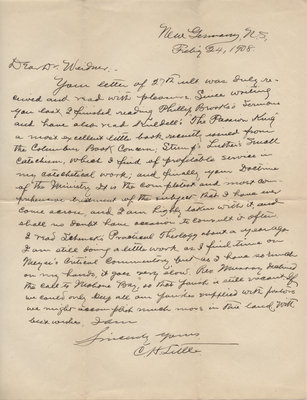 New Germany, N.S.
Feb'y 24, 1908.
Dear Dr. Weidner:-
Your letter of 27th ult. was duly re-
ceived and read with pleasure. Since writing
you last, I finished reading Phillip Brooks's Sermons
and have also read "The Passion King"
a most excellent little book recently issued from
the Lutheran Book Concern, Stump's Luther's Small
Catechism, which I find of profitable service in
my catechetical work; and finally your Doctrine
of the Ministry. It is the completest and most com-
prehensive treatment of the subject that I have ever
come across, and I am highly taken with it, and
shall no doubt have occasion to consult it often.
I read Practical Theology about a year ago.
I am still doing a little work as I find time on
Meyer's Critical Commentary, but as I have so much
on my hands it goes very slow. Rev. declined
the call to Mahone Bay, so that parish is still vacant. If
we could only keep all our parishes supplied with pastors
we might accomplish much more in this land. With
best wishes, I am
Sincerely yours
C H Little